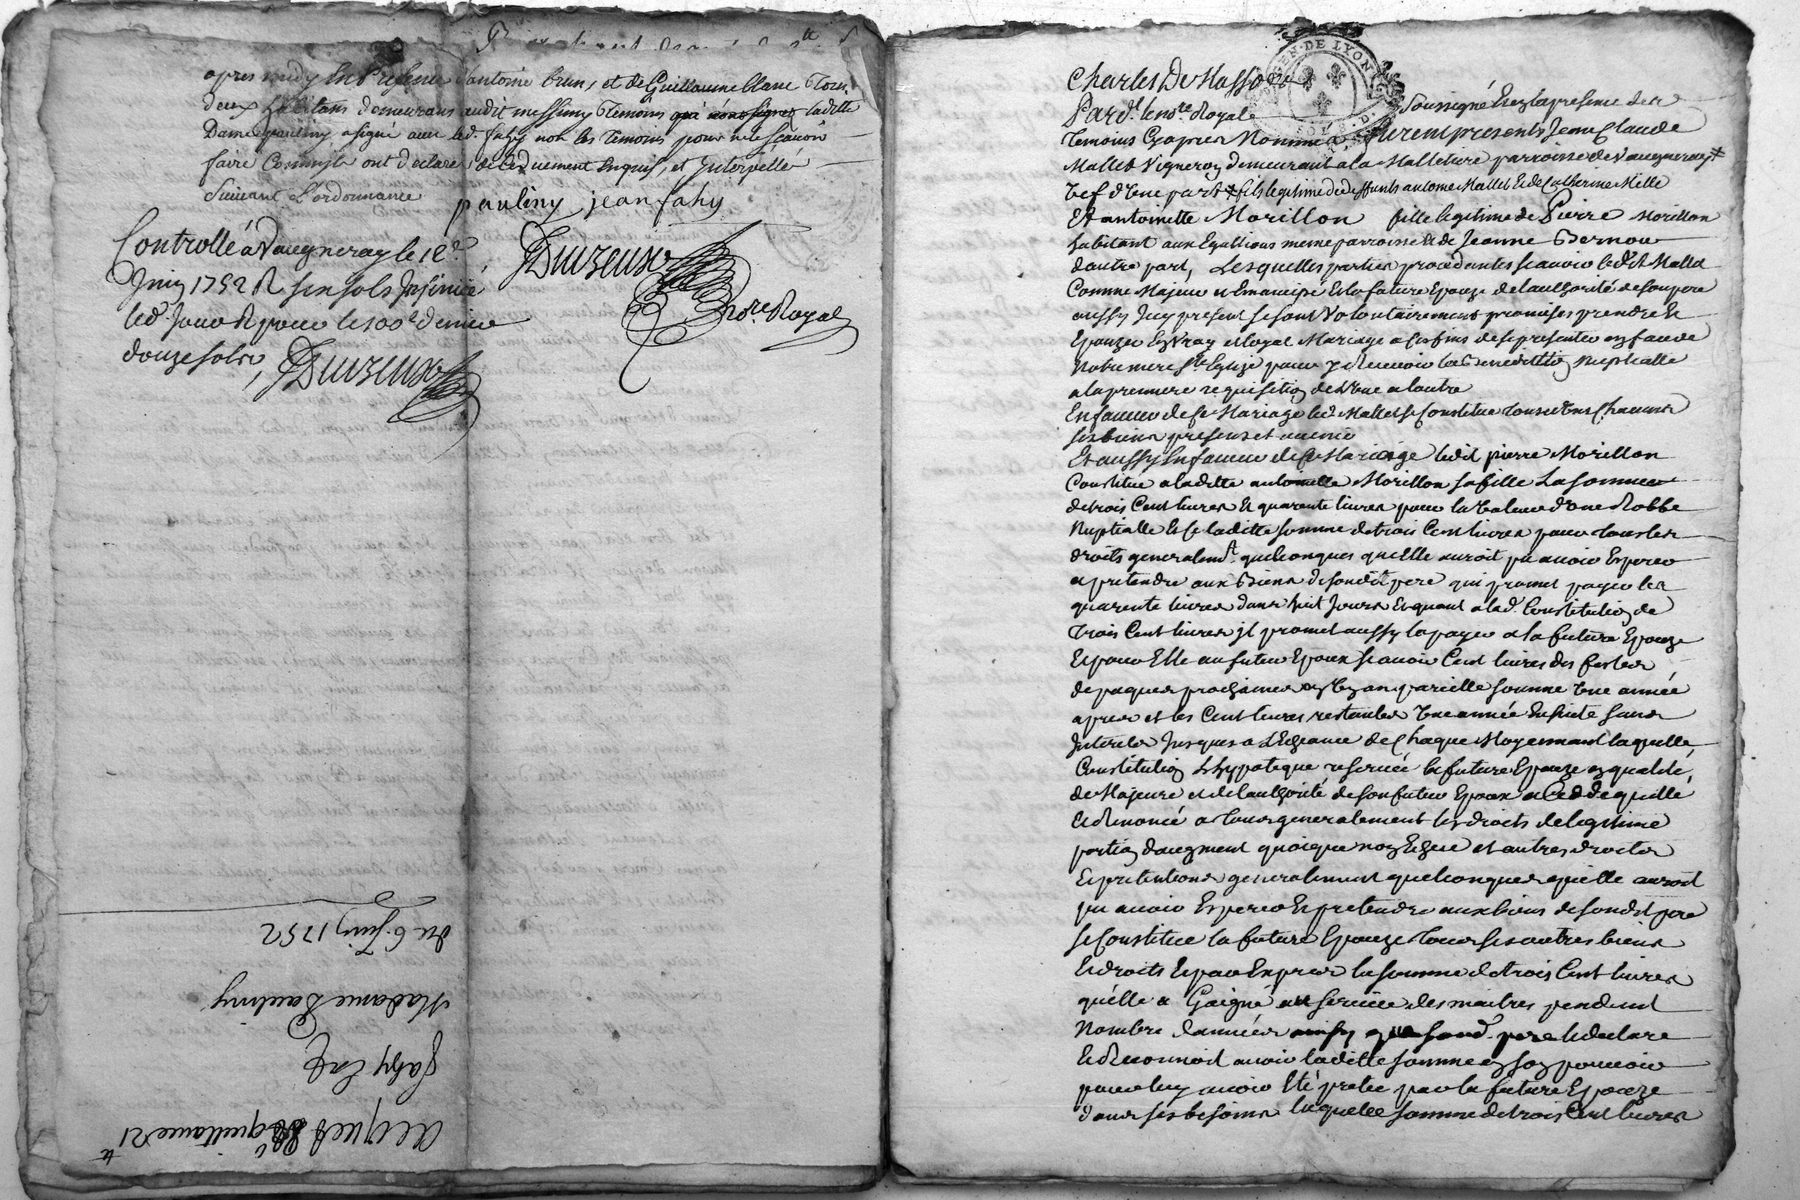 apres midy en presence d'antoine brun, et de Guillaume blanc
deux habitans demeurans audit messimy temoins qui nont signez laditte
Dame pauliny a signé avec led. fahy non les temoins pour ne scavoir
faire Comme ils ont declaré de ce duement enquis, et Interpellé
Suivant L'ordonnance
pauliny jean fahy
Controllé à Vaugneray le 12e
Juin 1752 R six sols Insinué
led. Jour R pour le 100e denier
douze sols,
Duizeux
Duizeux
Not.re Royal
du 6 Juin 1752
Madame Pauliny
fahy
acquet quittance 21
GEN. DE LYON
Charles De Masso
Par d.t le no.re Royal Soussigné En la presence des
temoins Cy apres Nommés furent presents Jean Claude
Mallet Vigneron demeurant a la Malletiere parroisse de Vaugneray
d'Une part + fils legitime de deffunts antoine Mallet & de Catherine Mille
Et antoinette Morillon fille legitime de Pierre Morillon
habitant aux meme parroisse & de Jeanne Bernou
dautre part, Lesquelles parties procedantes scavoir led.t Mallet
Comme Majeur et Emancipé Et la future Epouze de lauthorité de son pere
aussy Icy present se sont Volontairement promis se prendre &
Epouzer En Vray et loyal Mariage a Ces fins de se presenter en face de
Notre mere S.te Eglize pour y Recevoir la Benediction Nuptialle
a la premiere requisition de l'Une a lautre
En faveur de Ce Mariage led. Mallet se Constitue tous et Uns Chacuns
ses biens presens et avenir
Et aussy En faveur de Ce Mariage ledit pierre Morillon
Constitue a laditte antoinette Morillon sa fille La somme
de trois Cent livres & quarente livres pour la Valeur d'une Robbe
Nuptialle & Ce laditte somme de trois Cent livres pour tous les
droits generalem.t quelconques qu'elle auroit pu avoir Esperer
a pretendre aux Biens de sondit pere qui promet payer les
quarente livres dans huit Jours Et quant a lad. Constitution de
trois Cent livres il promet aussy la payer a la future Epouze
& pour Elle au futur Epoux scavoir Cent livres des festes
de paques prochaines en Un an pareille somme Une année
apres et les Cent livres restantes Une année Ensuite sans
Interets Jusques a L'Echeance de Chaque Moyennant laquelle
Constitution & hypoteque reservée la future Epouze en qualité
de Majeure et de lauthorité de son futur Epoux a Cedde quitté
& Renoncé a tous generalement les droits de legitime
portion daugment quoique non Echeu et autres droits
& pretentions generalement quelconques quelle auroit
pu avoir Esperer & pretendre aux biens de sondit pere
se Constitue la future Epouze tous ses autres biens
& droits & par Expres la somme de trois Cent livres
qu'elle a Gaigné au service des maitres pendant
Nombre dannées ainsy que sond. pere le declare
& Reconnoit avoir laditte somme en son pouvoir
pour luy avoir Eté pretée par la future Epouze
dans ses besoins laquelle somme de trois Cent livres